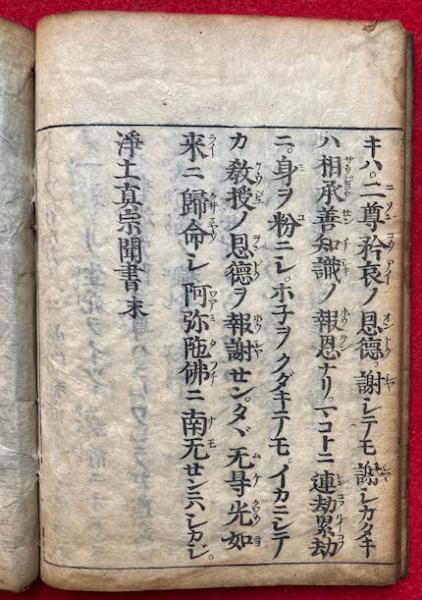 キハ。二尊矜哀ノ恩德、謝シテモ謝シカタキ
ハ相承善知識ノ報恩ナリ。マコトニ連劫累劫
ニ。身ヲ粉ニシ。ホ子ヲクダキテモ。イカニシテ
カ教授ノ恩德ヲ報謝セン。タヾ无㝵光如
來ニ歸命シ阿弥陁佛ニ南无センニハシカジ。
淨土真宗聞書末